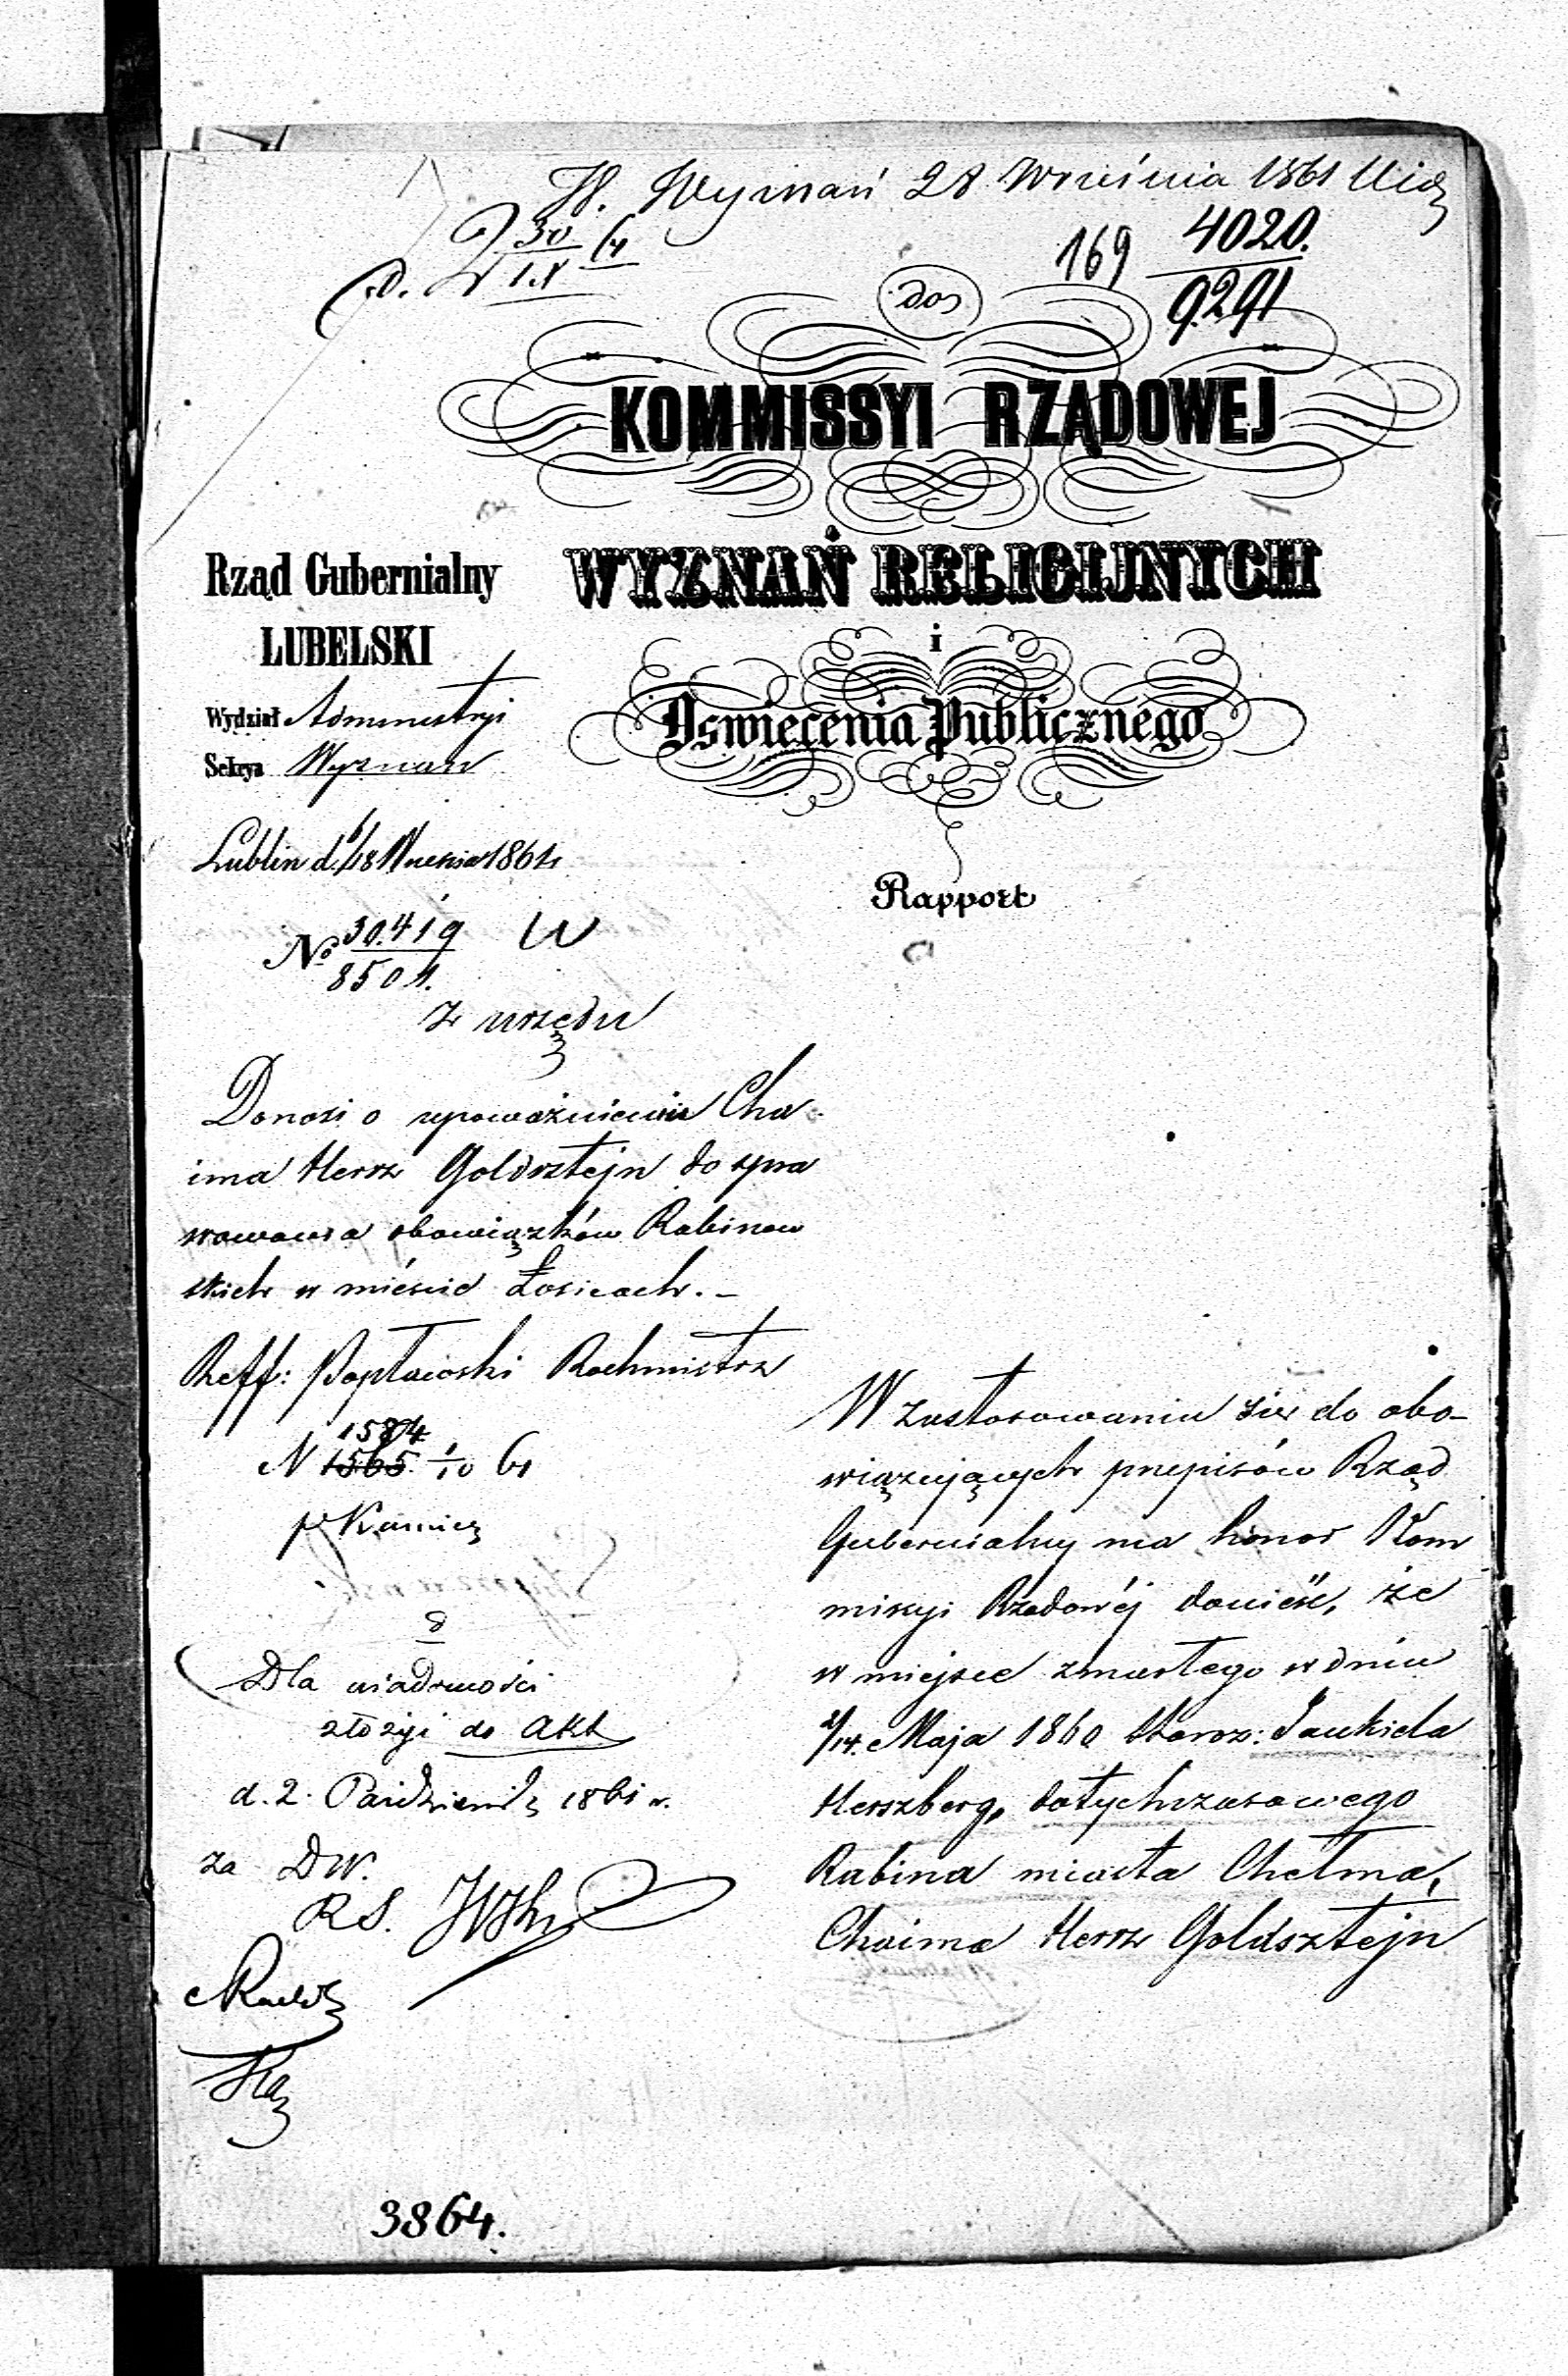 W. Wyznań 28 Września 1861
30
1.X
169 4020.
9291
do
KOMMISSYI RZĄDOWEJ
WYZNAŃ RELIGIJNYCH
i
Oswiecenia Publicznego
Rapport
Rząd Gubernialny
LUBELSKI
Wydział Administryi
Sekcya Wyznań
Lublin d. 6/18 Września 1861 r
No 30.419 W
8501.
Z urzędu
Donosi o upoważnieniu Cha
ima Hersz Goldsztejn do spra
wowania obowiązków Rabinow
skich w mieście Łosicach. –
Reff: Rachmistrz
1584
N 1565 1/10 61
8
Dla wiadomości
złożyć do Akt
d. 2. Października 1861 r.
za DW.
RS.
3864.
W zastosowaniu się do obo-
wiązujących przepisów Rząd
Gubernialny ma honor Kom
missyi Rządowéj donieść, że
w miejsce zmarłego w dniu
2/14. Maja 1860 Staroz: Jankiela
Herszberg, dotychczasowego
Rabina miasta Chełma,
Chaima Hersz Goldsztejn